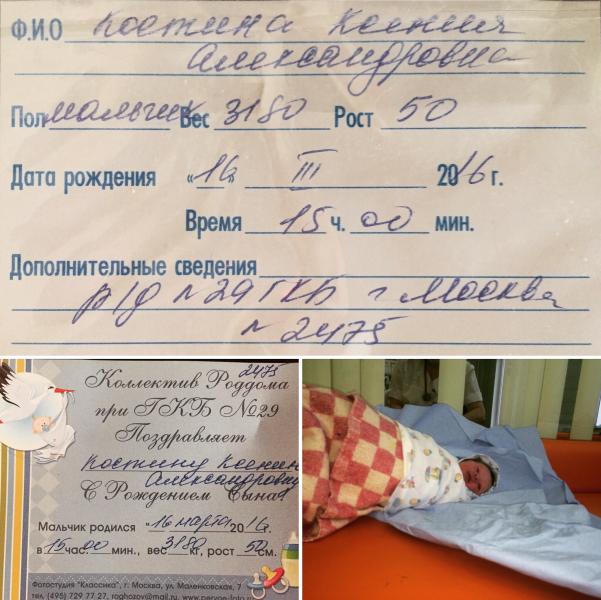 Ф.И.О Костина Ксения
Александровна
Пол мальчик Вес 3180 Рост 50
Дата рождения «16» III 2016 г.
Время 15 ч. 00 мин.
Дополнительные сведения
р/д №29 ГКБ г Москва
№ 2475
2475
Коллектив Роддома
при ГКБ №29
Поздравляет
Костину Ксению
Александровну
С Рождением Сына!
Мальчик родился «16 марта 2016г.
в 15 час. 00 мин., вес 3180 кг, рост 50 см.
Фотостудия "Классика", г. Москва, ул. Маленковская, 7
тел. (495) 729 77 27, roghozov@mail.ru, www.pervoe-foto.ru